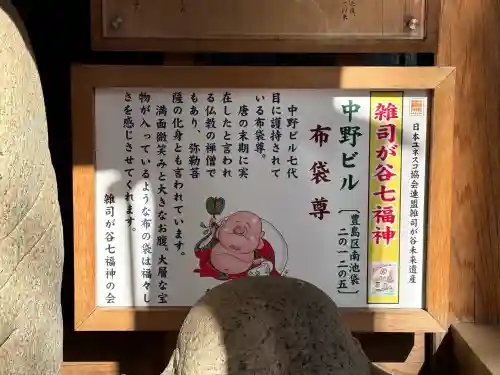 日本ユネスコ協会連盟雑司が谷未来遺産
雑司が谷七福神
中野ビル
［豊島区南池袋
二-一二-五］
布袋尊
中野ビル七代
目に護持されて
いる布袋尊。
唐の末期に実
在したと言われ
る仏教の禅僧で
もあり、弥勒菩
薩の化身とも言われています。
満面微笑みと大きなお腹。大層な宝
物が入っているような布の袋は福々し
さを感じさせてくれます。
雑司が谷七福神の会